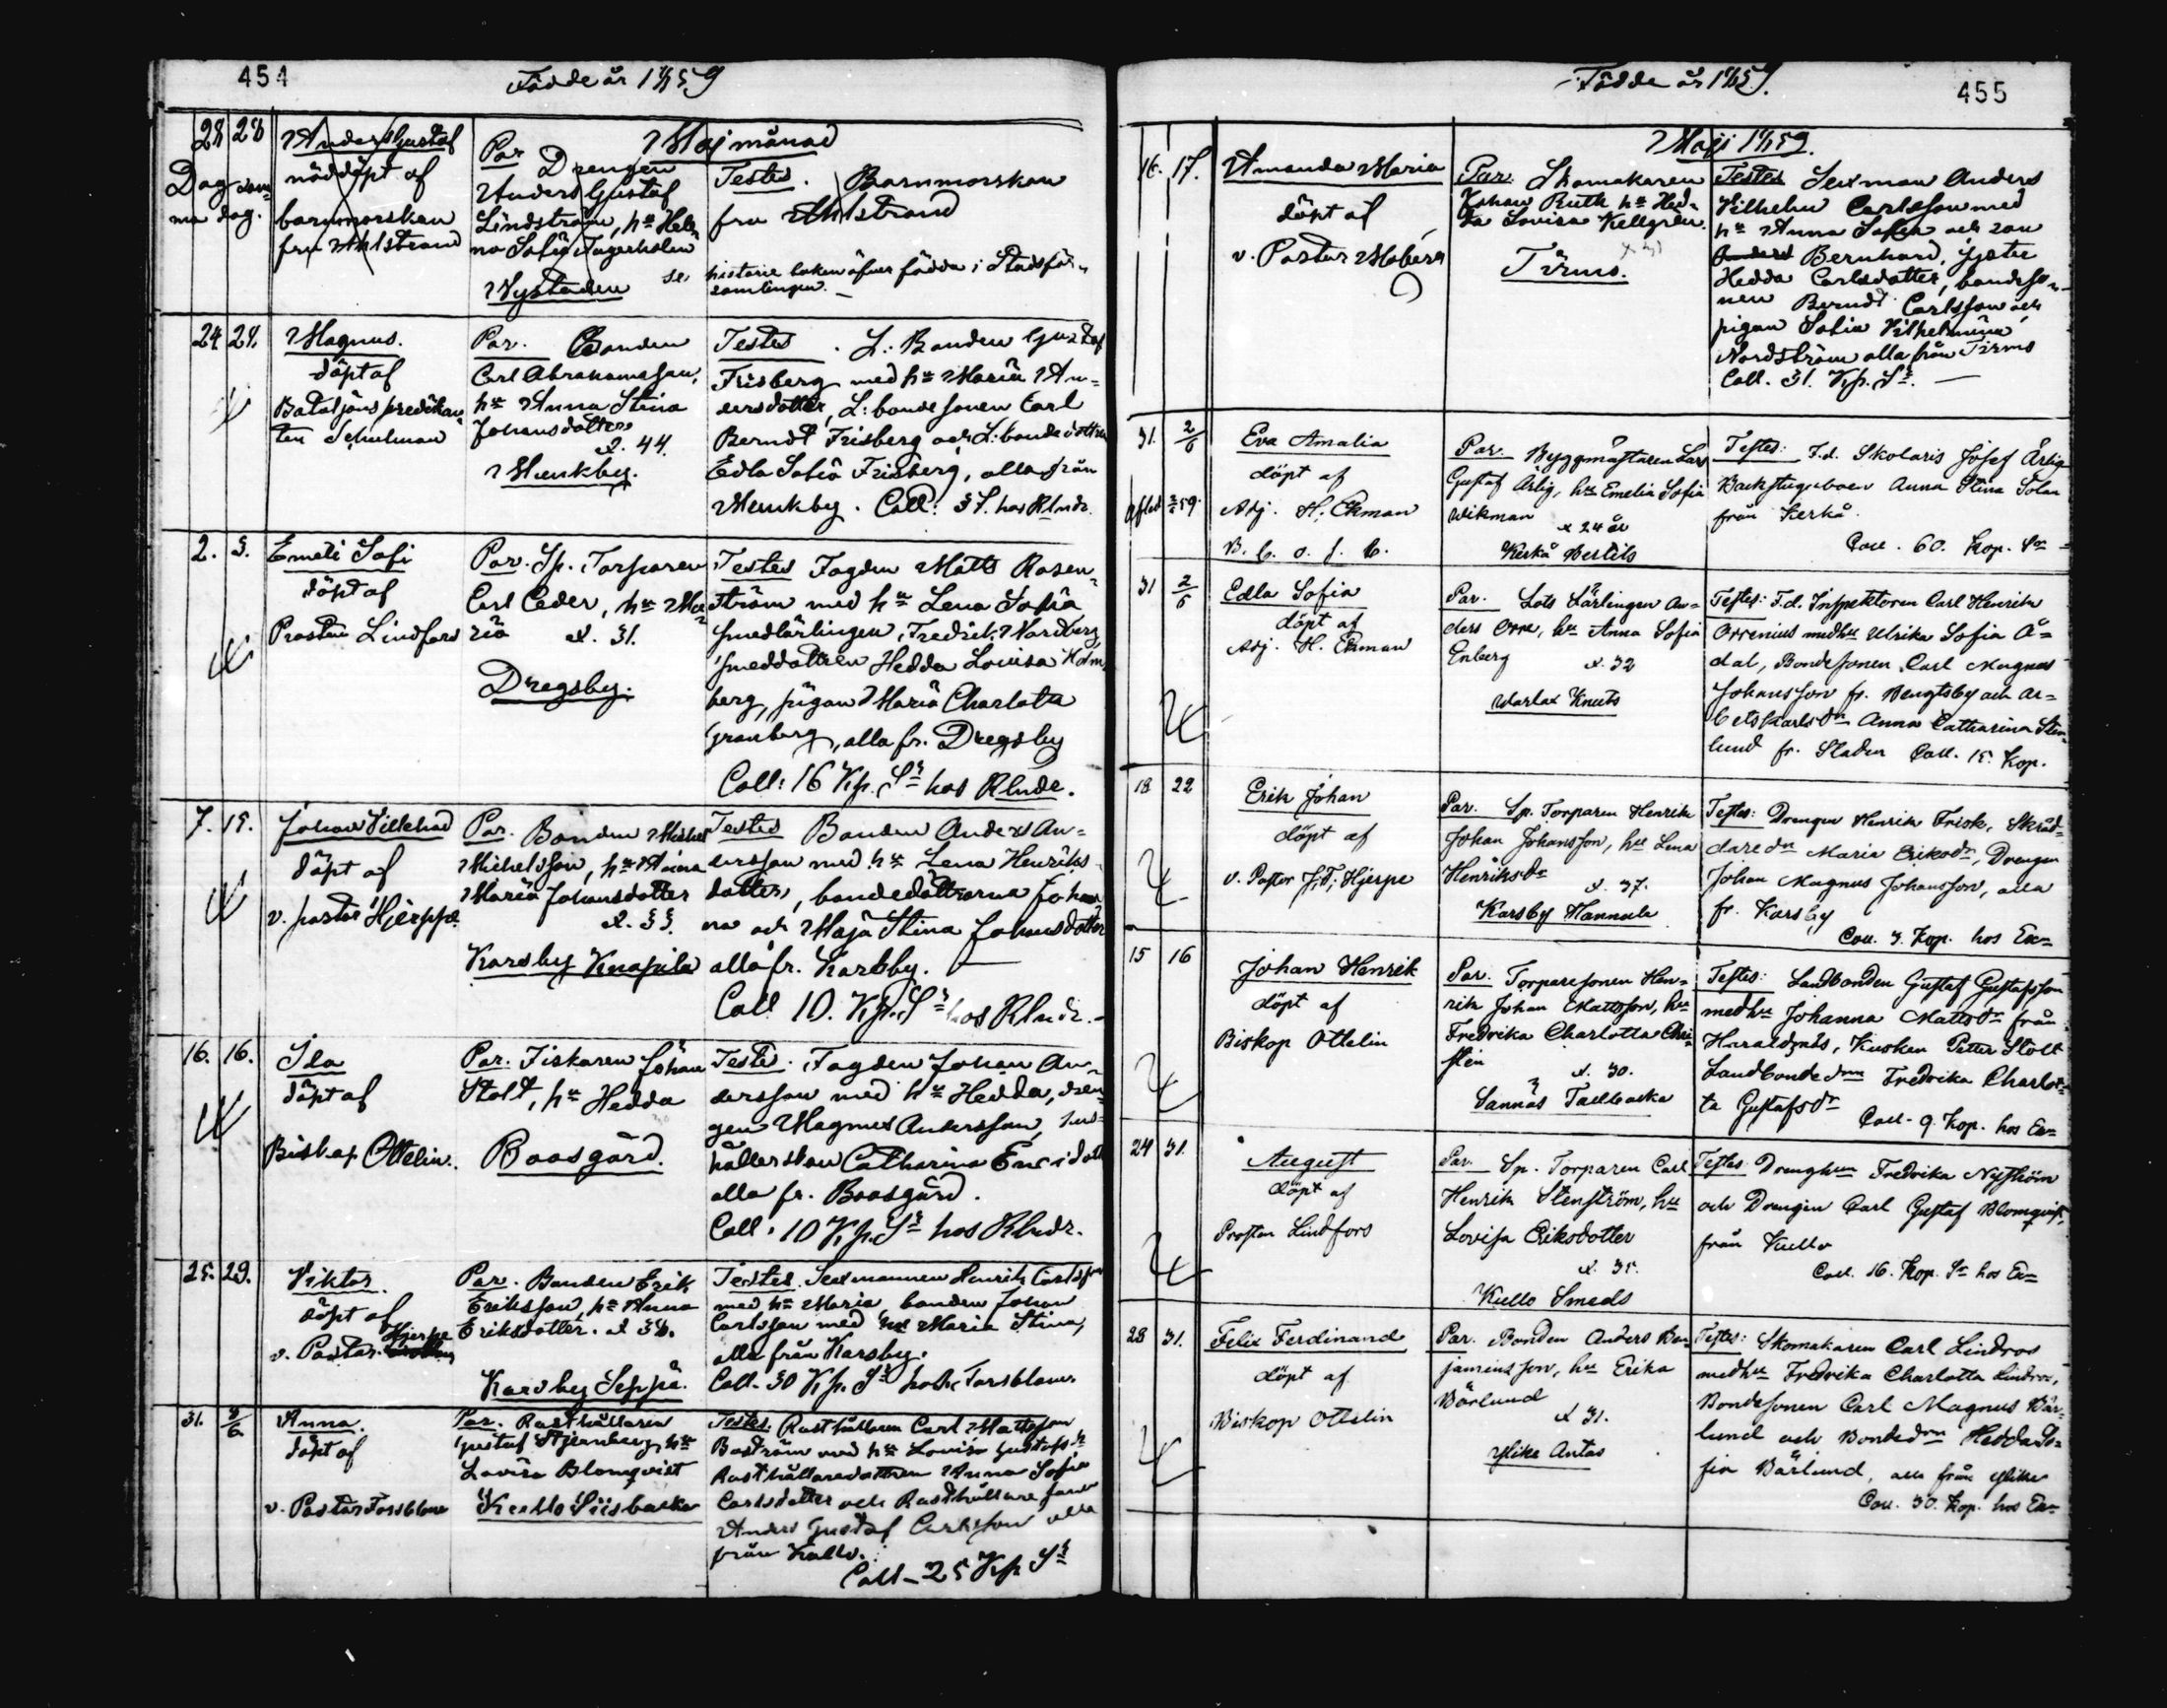 454
Födde år 1859
Maj månad
28 28
Dag som
ma dag.
Anders Gustaf
nöddöpt af
barnmorskan
fru Ahlstrand
Par Drengen
Anders Gustaf
Lindström, hu Hele
na Sofia Tagerholm
Nystaden
Testes. Barnmorskan
fru Ahlstrand
se historie boken öfver födda i Stadsför-
samlingen. —
24. 24.
Magnus.
döpt af
Bataljons predikan
ten Schulman
Par. Bonden
Carl Abrahamsson,
hu Anna Stina
Johansdotter
x. 44.
Munkby.
Testes. L: Bonden Gustaf
Frisberg med hu Maria An-
dersdotter, L: bondesonen Carl
Berndt Frisberg och L: bondedottren
Edla Sofia Frisberg, alla från
Munkby. Coll: 37. hos Rlndr.
2. 3.
Emeli Sofi
döpt af
Prosten Lindfors
Par. Sp. Torparen
Carl Ceder, hu Ma
ria x. 31.
Dregsby.
Testes Fogden Matts Rosen-
ström med hu Lena Sofia
smedlärlingen Fredrik Nordberg,
smeddottren Hedda Lovisa Holm
berg, pigan Maria Charlotta
Granberg, alla fr. Dregsby
Coll: 16 Kp. Sr hos Rlndr.
7. 15.
Johan Villehad
döpt af
v. pastor Hjerppe.
Par. Bonden Michel
Michelsson, hu Anna
Maria Johansdotter
x. 33.
Karsby Knapila
Testes Bonden Anders An-
dersson med hu Lena Henriks
dotter, bondedöttrarna Johan
na och Maja Stina Johansdotter
alla fr. Karsby. —
Coll 10. Kp. Sr hos Rlndr. -
16. 16.
Ida
döpt af
Biskop Ottelin.
Par. Fiskaren Johan
Stolt, hu Hedda
Boasgård.
Testes. Fogden Johan An-
dersson med hu Hedda, dren
gen Magnus Andersson, hus-
hållerskan Catharina Ericsdott
alla fr. Boasgård.
Coll: 10 Kp. Sr hos Rlndr.
25. 29.
Viktor.
döpt af
v. Pastor Hjerpe
Par. Bonden Erik
Eriksson, hu Anna
Eriksdotter. x 38.
Karsby Seppä.
Testes. Sexmannen Henrik Carlsson
med hu Maria, bonden Johan
Carlsson med hu Maria Stina,
alla från Karsby.
Coll. 30 Kp. Sr hos Forsblom.
31. 3/6
Anna.
döpt af
v. Pastor Forsblom
Par. Rusthållaren
Gustaf Stjernberg, hu
Lovisa Blomqvist
Kullo Siisbacka
Testes. Rusthållaren Carl Mattsson
Boström med hu Lovisa Gustafsdr
Rusthållaredottren Anna Sofia
Carlsdotter och Rusthållare sonen
Anders Gustaf Carlsson alla
från Kullo.
Coll - 25 Kp Sr
Födde år 1859.
455
Maji 1859.
16. 17.
Amanda Maria
döpt af
v. Pastor Moberg
Par. Skomakaren
Johan Ruth hu Hed-
da Lovisa Kellgren.
x 31
Tirmo.
Testes Sexman Anders
Vilhelm Carlsson med
hu Anna Sofia och son
Bernhard, gästen
Hedda Carlsdotter, bondeso-
nen Berndt Carlsson och
pigan Sofia Vilhelmina
Nordström alla från Tirmo
Coll. 31. Kp. Sr. —
31. 2/6
Eva Amalia
döpt af
Adj. H. Ekman
B. b. o. f. b.
Par. Byggmästaren Lars
Gustaf Ärlig, hu Emelia Sofia
Wikman x 24 år
Kerko Bertils
Testes: F.d. Skolaris Josef Ärlig
Backstuguboen Anna Stina Solan
från Kerko.
Coll. 60. Kop. Sr
31 2/6
Edla Sofia
döpt af
Adj. H. Ekman
Par. Lots Lärlingen An-
ders Orre, hu Anna Sofia
Enberg x. 32
Warlax Knuts
Testes: F.d. Inspektoren Carl Henrik
Orrenius med hu Ulrika Sofia Å-
dal, Bondesonen Carl Magnus
Johansson fr. Bengtsby och Ar-
betskarlsdr Anna Catharina Sten-
lund fr. Staden Coll. 15. Kop.
18 22
Erik Johan
döpt af
v. Pastor J. F. Hjerpe
Par. Sp. Torparen Henrik
Johan Johansson, hu Lena
Henriksdr
x. 37.
Karsby Hannula
Testes: Drengen Henrik Frisk, Skräd-
daredn Maria Eriksdr, Drengen
Johan Magnus Johansson, alla
fr. Karsby
Coll. 3. Kop. hos Ex=
15 16
Johan Henrik
döpt af
Biskop Ottelin
Par. Torparesonen Hen-
rik Johan Mattsson, hu
Fredrika Charlotta Chri-
stin x. 30.
Sannäs Tallbacka
Testes: Landbonden Gustaf Gustafsson
med hu Johanna Mattsdr från
Haraldsnäs, Kusken Petter Stolt
Landbondedrn Fredrika Charlot-
ta Gustafsdr
Coll. 9 Kop. hos Ex=
24 31.
August
döpt af
Prosten Lindfors
Par Sp. Torparen Carl
Henrik Stenström, hu
Lovisa Eriksdotter
x. 35.
Kullo Smeds
Testes: Drenghun Fredrika Nyström
och Drengen Carl Gustaf Blomqvist,
från Kullo
Coll. 16. Kop. Sr hos Ex=
28 31.
Felix Ferdinand
döpt af
Biskop Ottelin
Par. Bonden Anders Ben-
jaminsson, hu Erika
Bärlund
x 31.
Ylike Antas
Testes: Skomakaren Carl Lindros
med hu Fredrika Charlotta Lindros,
Bondesonen Carl Magnus Bär-
lund och Bondedrn Hedda So-
fia Bärlund, alla från Ylike
Coll. 30. Kop. hos Ex=